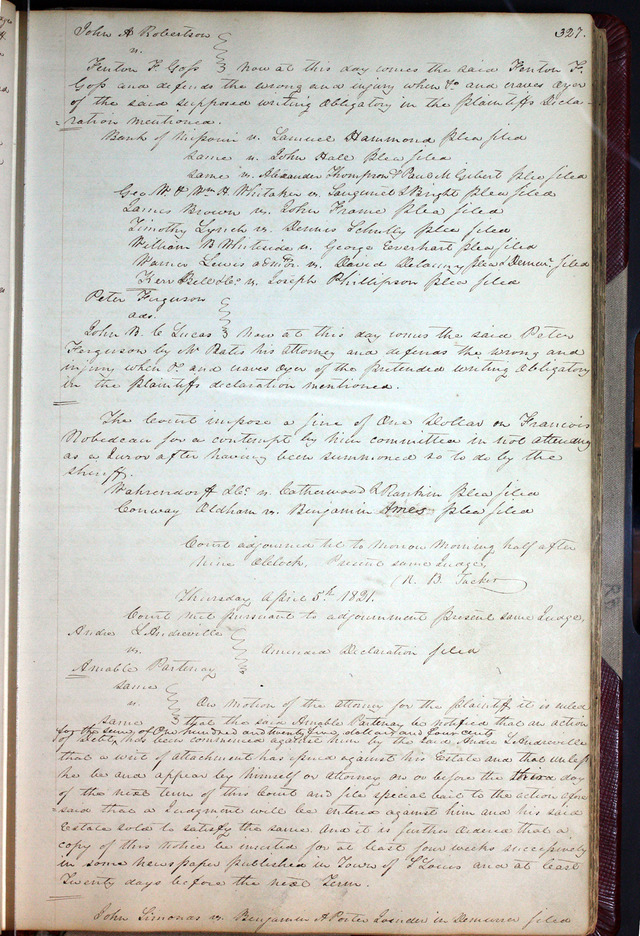 327.
John A Robertson
vs.
Fenton F. Goss } Now at this day comes the said Fenton F.
Goss and defends the wrong and injury when &c and craves Oyer
of the said supposed writing Obligatory in the plaintiffs Decla-
=ration mentioned.
Bank of Missouri vs. Samuel Hammond plea filed
same vs. John Hall plea filed
same vs. Alexander Thompson & Paul M Gibert plea filed
Geo W. & Wm H Whitaker vs. Sanguinet & Bright plea filed
James Brown vs. John Frame plea filed
Timothy Lynch vs. Dennis plea filed
William B Whiteside vs. George Everhart plea filed
Warner Lewis admr. vs. David Delauny plea & Demur. filed
Kerr Bell & Co vs. Joseph Phillipson plea filed
Peter Ferguson
ads.
John B. C Lucas } Now at this day comes the said Peter
Ferguson by Mr Bates his attorney and defends the wrong and
injury when &c and craves Oyer of the pretended writing Obligatory
in the plaintiffs declaration mentioned.
The Court impose a fine of One Dollar on Francois
Robedeau for a contempt by him committed in not attending
as a Juror after having been summoned so to do by the
sheriff.
Wahrendorff & Co. vs. Catherwood & Rankin plea filed
Conway Oldham vs. Benjamin Ames plea filed
Court adjourned til to Morrow Morning half after
Nine OClock. Present same Judge,
N. B. Tucker
Thursday April 5th 1821.
Court met pursuant to adjournment Present same Judge.
Andre L Andreville
vs. } Amended Declaration filed
Amable Partenay
same
vs. } On motion of the attorney for the plaintiff it is ruled
same that the said Amable Partenay be notified that an action
for the sum of One hundred and twenty five dollars and four cents
of debt, has been commenced against him by the said Andre L Andreville
that a writ of attachment has issued against his Estate and that unless
he be and appear by himself or attorney on or before the third day
of the next term of this Court and file special bail to the action afore
=said that a Judgment will be entered against him and his said
Estate sold to satisfy the same. And it is further ordered that a
copy of this notice be inserted for at least four weeks successively
in some Newspaper published in Town of St Louis and at least
Twenty days before the next Term.
John Simonds vs. Benjamin A Porter Joinder in Demurrer filed